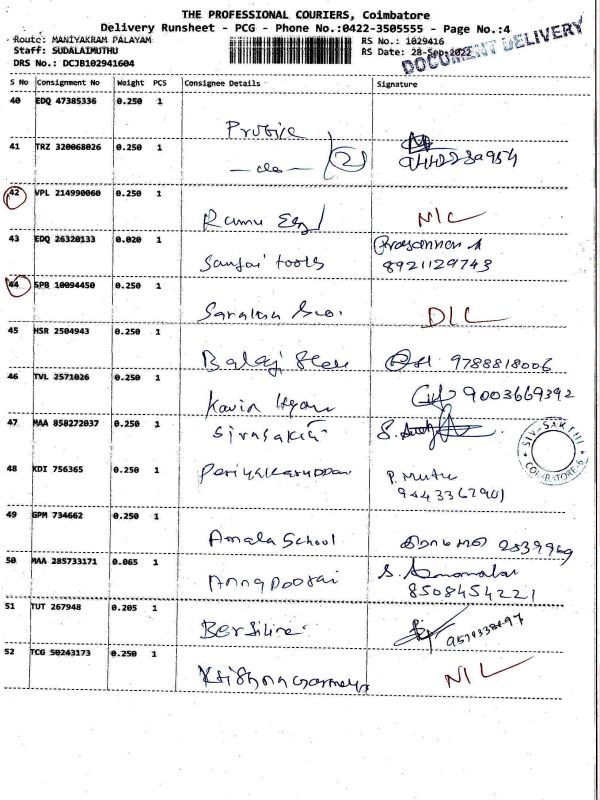 THE PROFESSIONAL COURIERS, Coimbatore
Delivery Runsheet - PCG - Phone No.:0422-3505555 - Page No.:4
Route: MANIYAKRAM PALAYAM
RS No.: 1029416
Staff: SUDALAIMUTHU
RS Date: 28-Sep-2022
DRS No.: DCJB102941604
DOCUMENT DELIVERY
S No Consignment No Weight PCS Consignee Details Signature
40 EDQ 47385336 0.250 1
41 TRZ 320068026 0.250 1
-do- 2
42 VPL 214990060 0.250 1
Ramu N/C
43 EDQ 26320133 0.020 1
Sanjai tools 8921129743
44 SPB 10094450 0.250 1
D/L
45 HSR 2504943 0.250 1
Balaji 9788818006
46 TVL 2571026 0.250 1
Kavin 9003669392
47 MAA 850272037 0.250 1
Sivasakthi
SIV-SAKTHI COIMBATORE-6
48 KDI 756365 0.250 1
P. Mutu
9443362901
49 GPM 734662 0.250 1
Amala School 2539969
50 MAA 285733171 0.065 1
Annapoorai
8508454221
51 TUT 267948 0.205 1
52 TCG 50243173 0.250 1
N/L